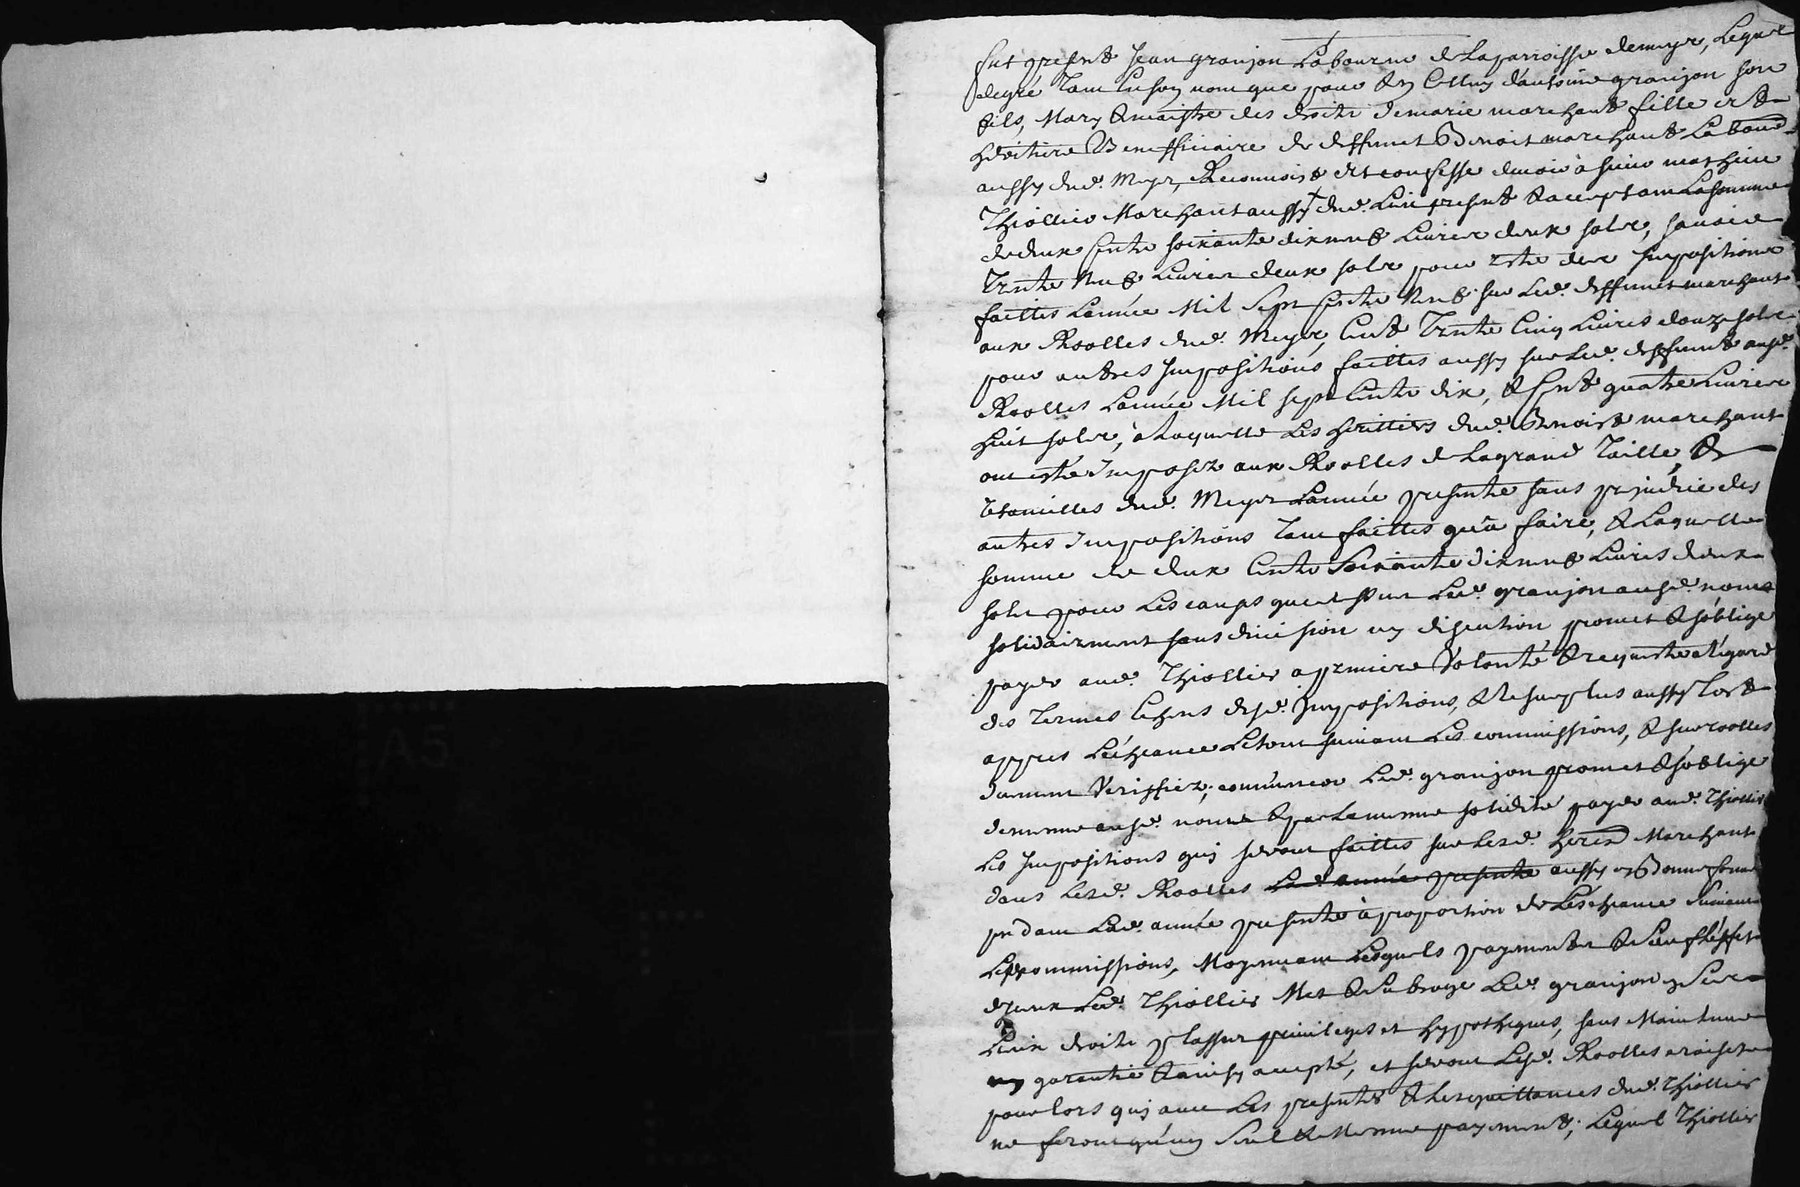 fut present Jean granjon Laboureur de La parroisse de meyr, Lequel
degré tant en son nom que pour & en Celluy d'antoine granjon son
fils, Mary & maistre des droits de marie marchant fille et &
héritiere Benefficiaire de deffunct Benoist marchant Laboud
aussy dud. Meyr, Reconnoist et confesse devoir à sieur mathieu
Thiollier Marchant aussy dud. Lieu present & acceptant La somme
de deux Cents soixante dixneuf Livres deux sols, savoir
trente neuf Livres deux sols pour reste des Impositions
faittes L'année Mil Sept Cents Neuf sur Led. deffunct marchant
aux Roolles dud. Meyr, Cent trente Cinq Livres douze sols
pour autres Impositions faittes aussy sur Led. deffunct ausd.
Roolles L'année Mil sept Cents dix, & Cent quatre Livres
huit sols, à Laquelle Les heritiers dud. Benoist marchant
ont esté Imposez aux Roolles de La grand Taille, &
dud. Meyr L'année presente sans prejudice des
autres Impositions tant faittes qu'a faire, & Laquelle
somme de deux Cents Soixante dixneuf Livres deux
sols pour Les causes que dessus Led. granjon ausd. noms
solidairement sans division ny discution promet & s'oblige
payer aud. Thiollier a premiere Volonté & requeste a l'égard
des termes Echeus desd. Impositions, & Le surplus aussy tost
appres L'écheance Le tout suivant Les commissions, & sur roolles
dument Veriffiez; comme encor Led. granjon promet & s'oblige
de mesme ausd. noms & par La mesme solidité payer aud. Thiollier
Les Impositions quy seront faittes sur Lesd. herirs Marchant
dans Lesd. Roolles Lad. année presente aussy en Bonne forme
pendant Lad. année presente à proportion de L'escheance suivant
Les commissions, Moyenant Lesquels payements & sauf L'effet
d'yceux Led. Thiollier Met & Subroge Led. granjon en Ses
Lieux droits place privileges et hypotheques, sans Maintenue
ny garantie & ainsy accepté, et seront Lesd. Roolles
pour lors quy avec Les presentes & Les quittances dud. Thiollier
ne feront qu'un Seul & Mesme payement; Lequel Thiollier